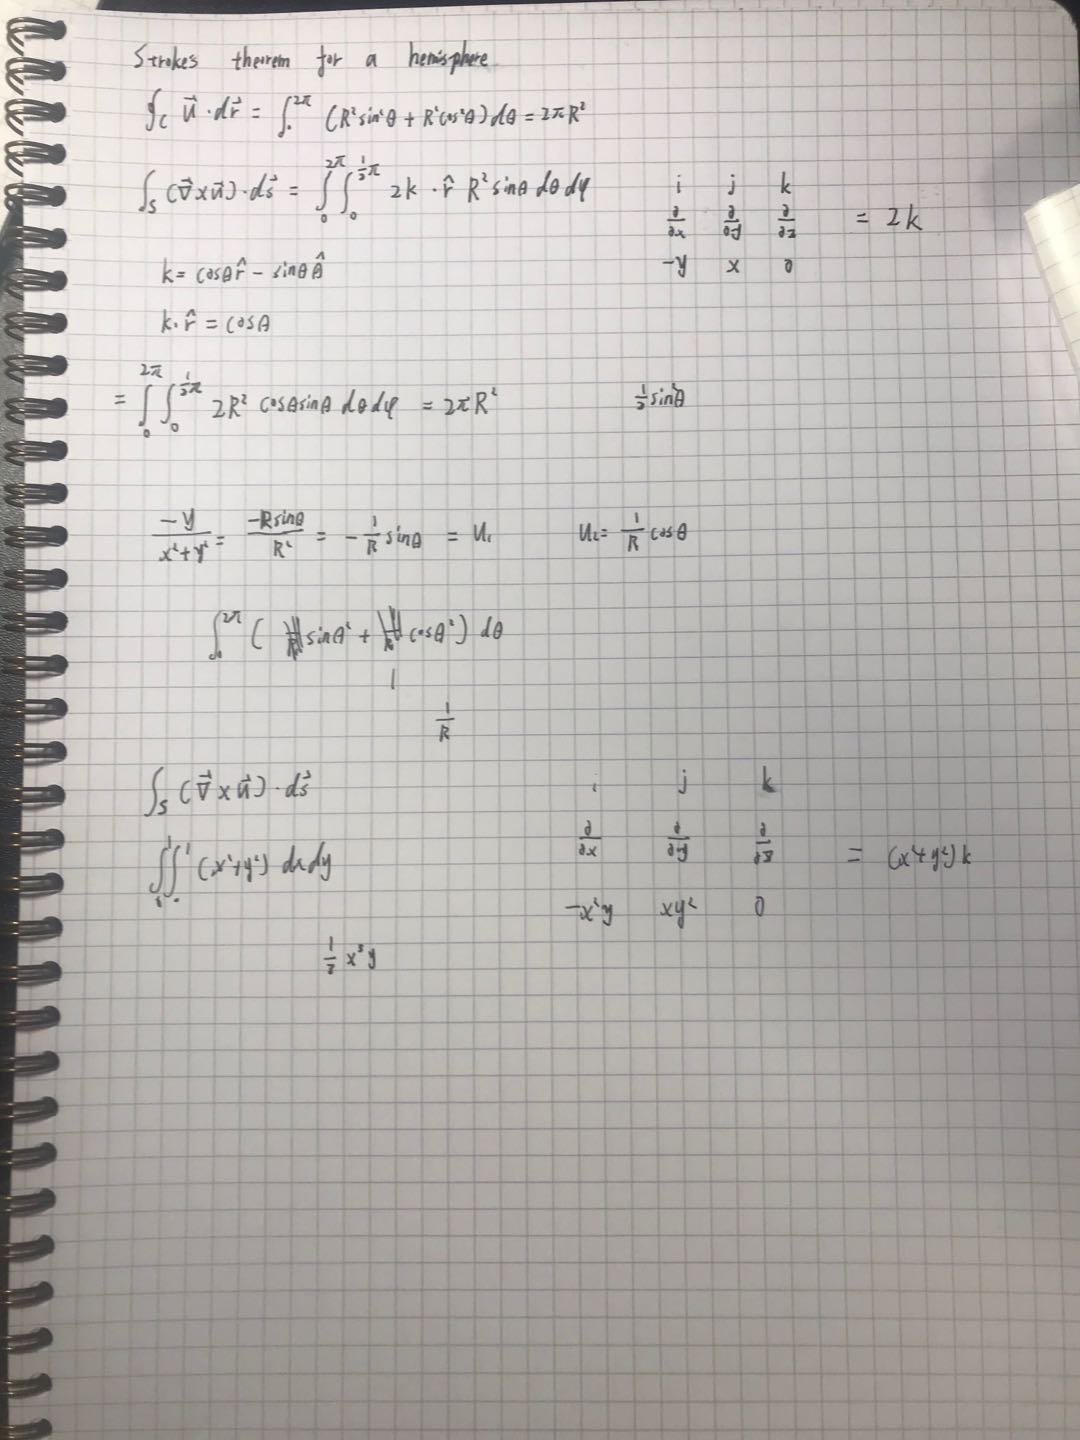 Strokes theorem for a hemisphere
∮_C u⃗ · dr⃗ = ∫₀^{2π} (R² sin²θ + R² cos²θ) dθ = 2πR²
∫_S (∇⃗ × u⃗) · ds⃗ = ∫₀^{2π} ∫₀^{½π} 2k · r̂ R² sinθ dθ dφ
i j k
∂/∂x ∂/∂y ∂/∂z = 2k
-y x 0
k = cosθ r̂ - sinθ θ̂
k · r̂ = cosθ
= ∫₀^{2π} ∫₀^{½π} 2R² cosθ sinθ dθ dφ = 2πR²
½ sin²θ
-y/(x²+y²) = -R sinθ/R² = -1/R sinθ = u₁
u₂ = 1/R cosθ
∫₀^{2π} ( sinθ² + cosθ² ) dθ
1
1/R
∫_S (∇⃗ × u⃗) · ds⃗
i j k
∂/∂x ∂/∂y ∂/∂z = (x²+y²) k
-x²y xy² 0
∫₀¹ ∫₀¹ (x²+y²) dx dy
1/3 x³y